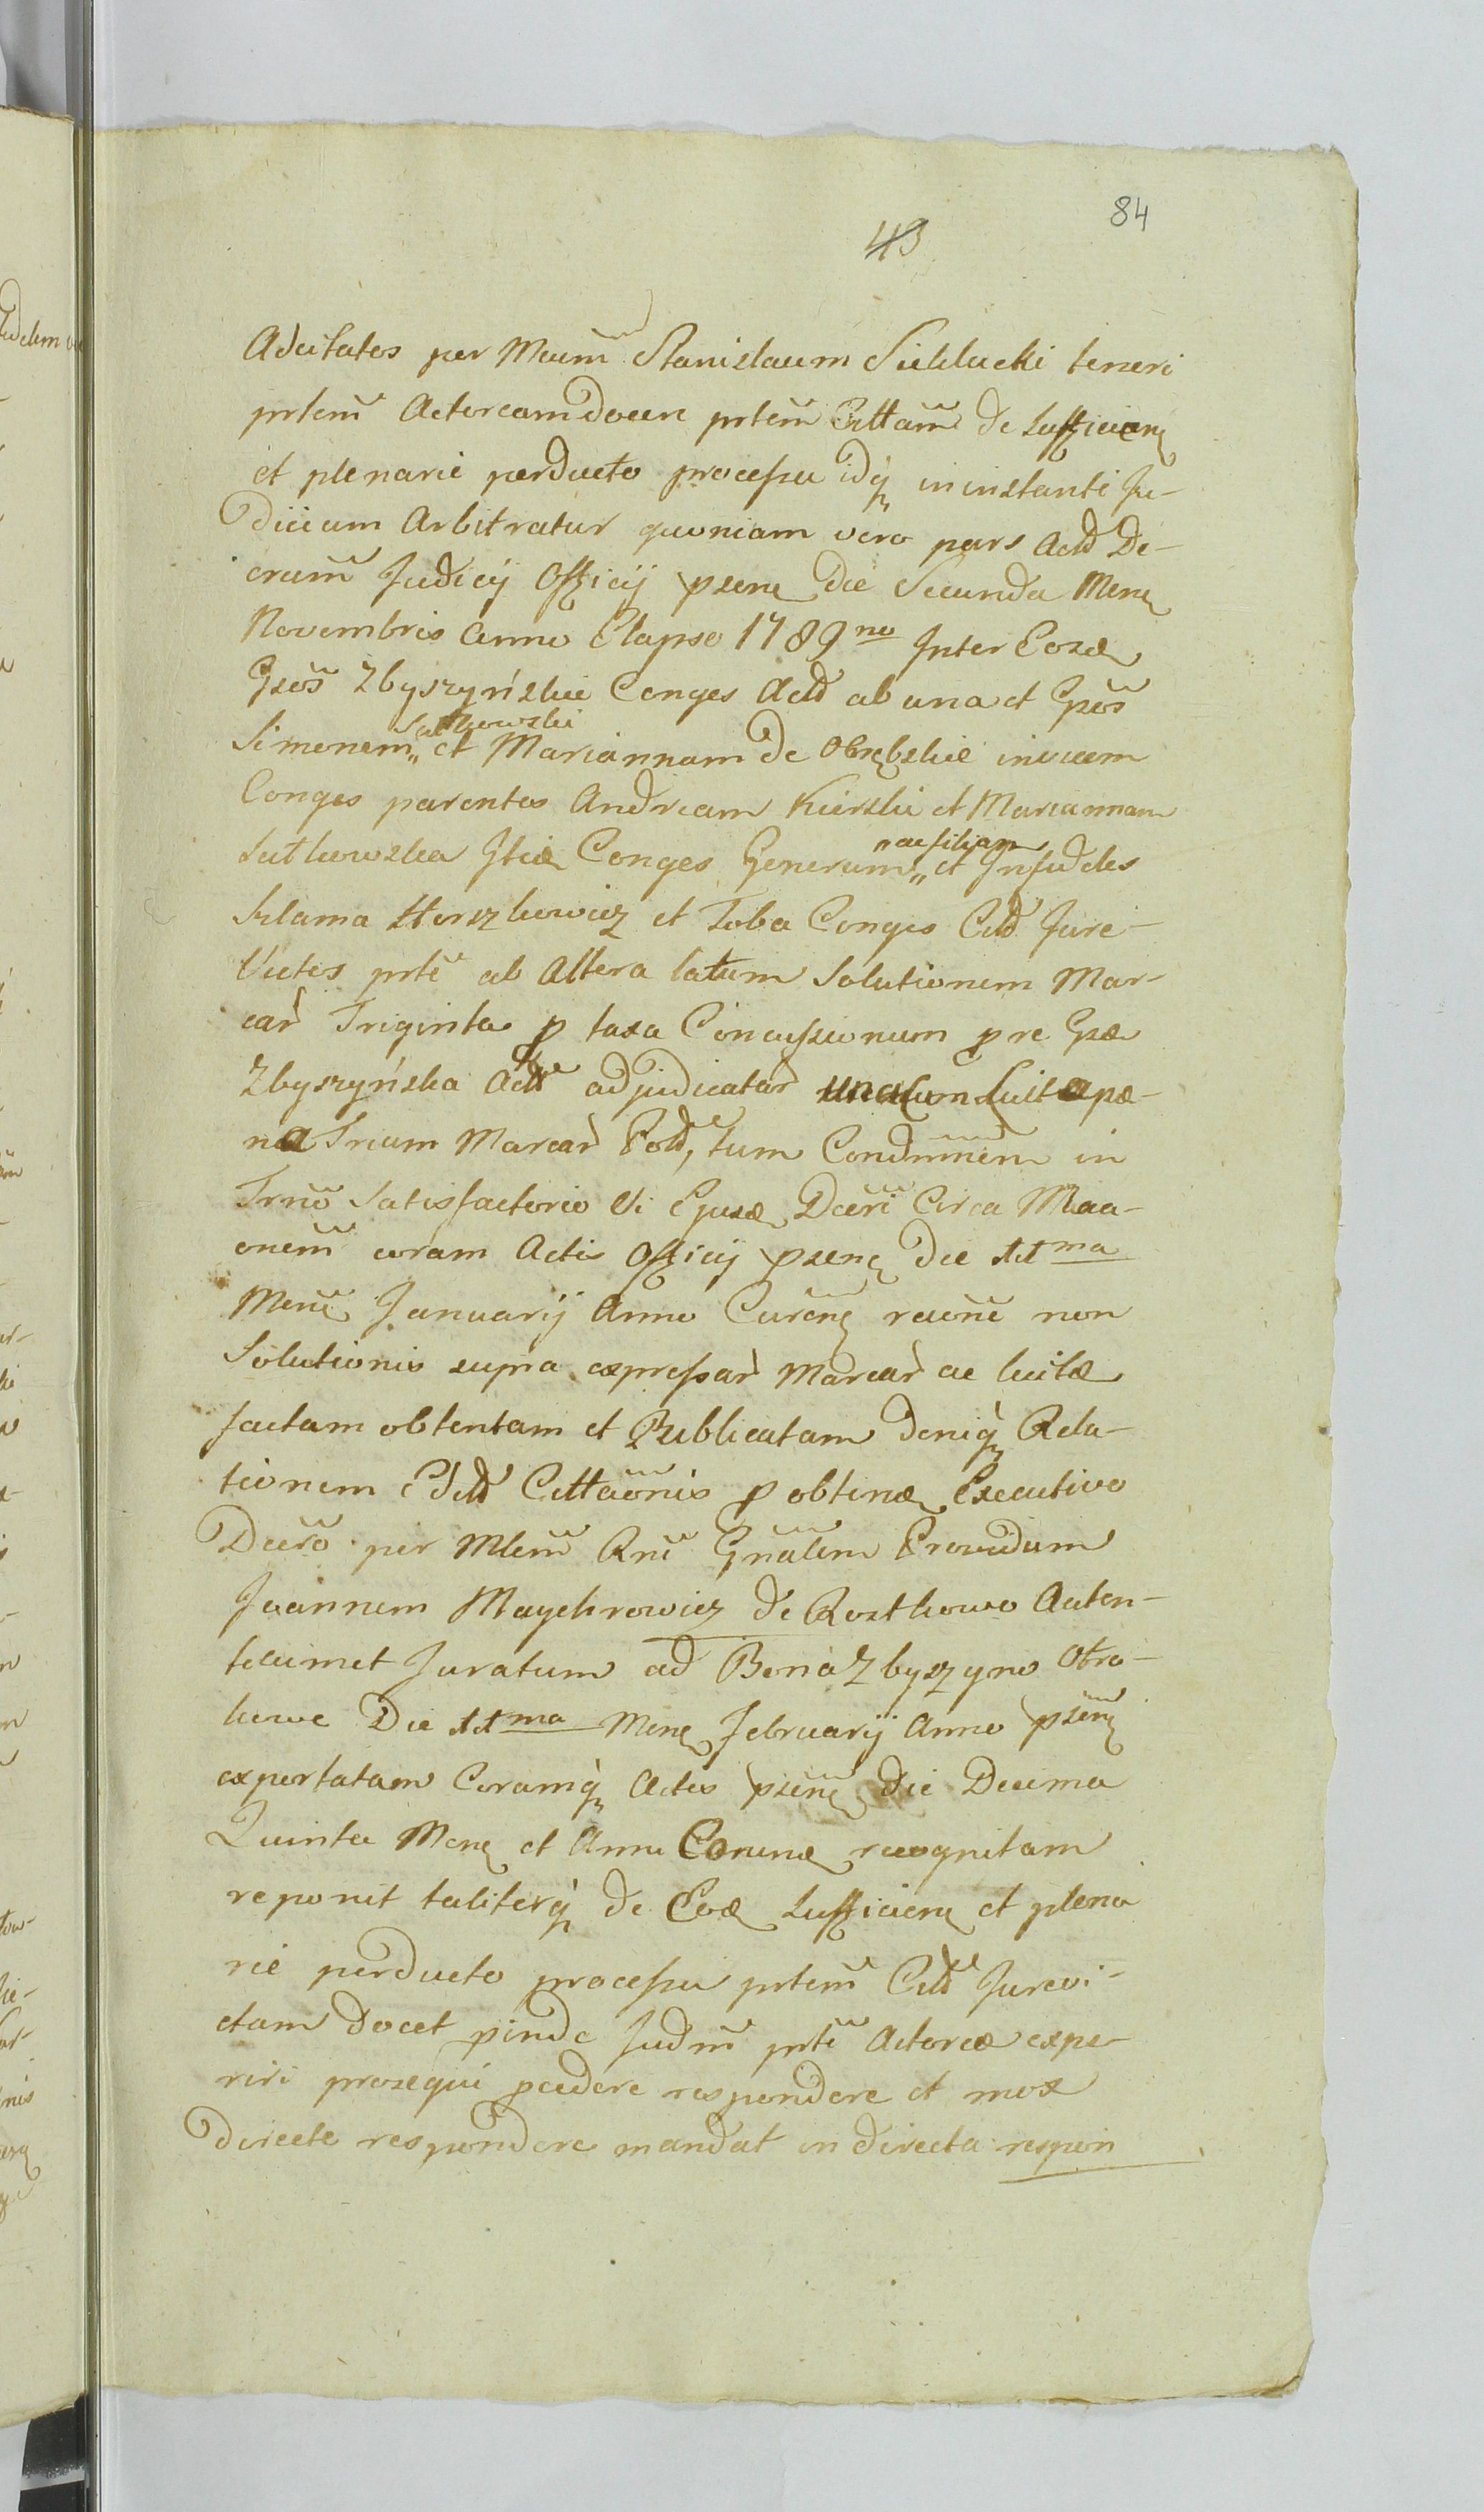 84
43
Adcitatos per Mcum̃ Stanislaum Sieklucki teneri
prtem̃ Actoream docere prtem̃ Cittam̃ de sufficienȝ
et plenarie perducto processu idq̃ in instanti Ju-
dicium Arbitratur quoniam vero pars Actõ De-
crum̃ Judicij Officij psenȝ die Secunda Menȝ
Novembris Anno Elapso 1789no Inter Eosdȝ
Gsõs Zbyszyńskie Conges Actõ ab una et Gsõs
Sutkowski
Simonem„ et Mariannam de Obrębskie invicem
Conges parentes Andream Kierski et Mariannam
„ac filiam
Sutkowska Itidȝ Conges Generum„ et Infideles
Szlama Herszkowicz et Toba Conges Cittõ Jure-
victos prtẽ ab Altera latum Solutionem Mar-
car̀ Triginta p taxa Concussionum p re Gsæ
Zbyszyńska Acttæ adjudicatar̀ una cum Luita pæ-
na Trium Marcar̀ Pold, tum Condmnem̃ in
Trnõ Satisfactorio Vi Ejusdȝ Dcerĩ Circa Mtaa-
onem̃ coram Actis Officij psenȝ die 11ma
Menȝ Januarij Anno Curẽnȝ raõne non
Solutionis supra expressar̀ Marcar̀ ac luitæ
factam obtentam et Publicatam deniq̀ Rela-
tionem Edittõ Cittaõnis p obtinȝ Executivo
Dcerõ per Mlem̃ Rnĩ Gnalem̃ Providum
Joannem Maychrowicz de Rostkowo Auten-
tecum et Juratum ad Bona Zbyszyno Obro-
kowe Die 11ma Menȝ Februarij Anno psenȝ
exportatam Coramq̀ Actis psenȝ die Decima
Quinta Menȝ et Anno Eorundȝ recognitam
reponit taliterq̀ de Eodȝ sufficienȝ et plena
rie perducto processu prtem̃ Cittõ Jurevi-
ctam docet pinde Judm̃ prtĩ Actoreæ expe-
riri prosequi pcedere respondere et mox
directe respondere mandat in directa respon